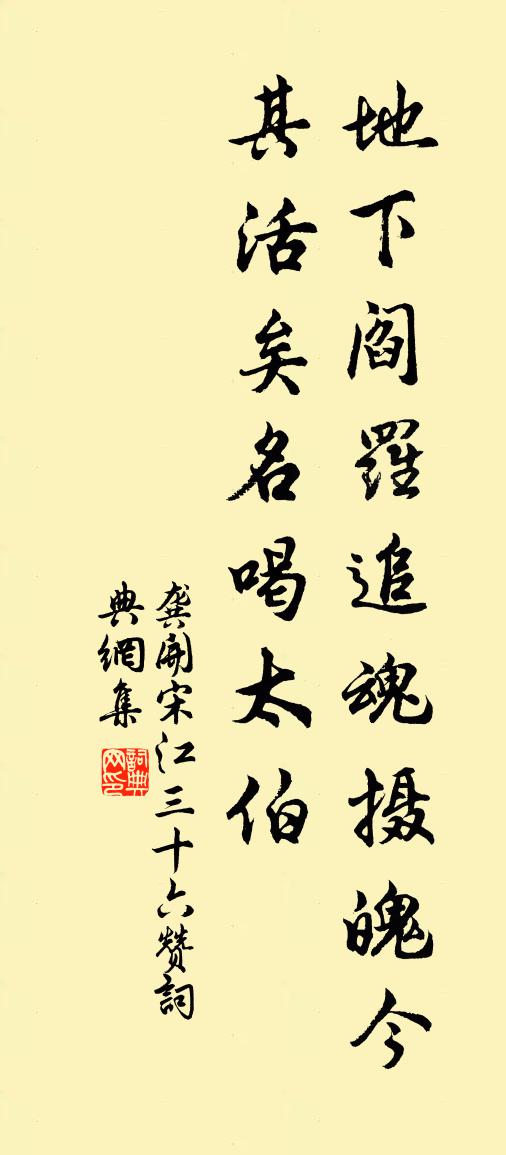 地下阎羅追魂摄魄今
其活矣名喝太伯
龚開宋江三十六赞詞
典網集
詞典网印